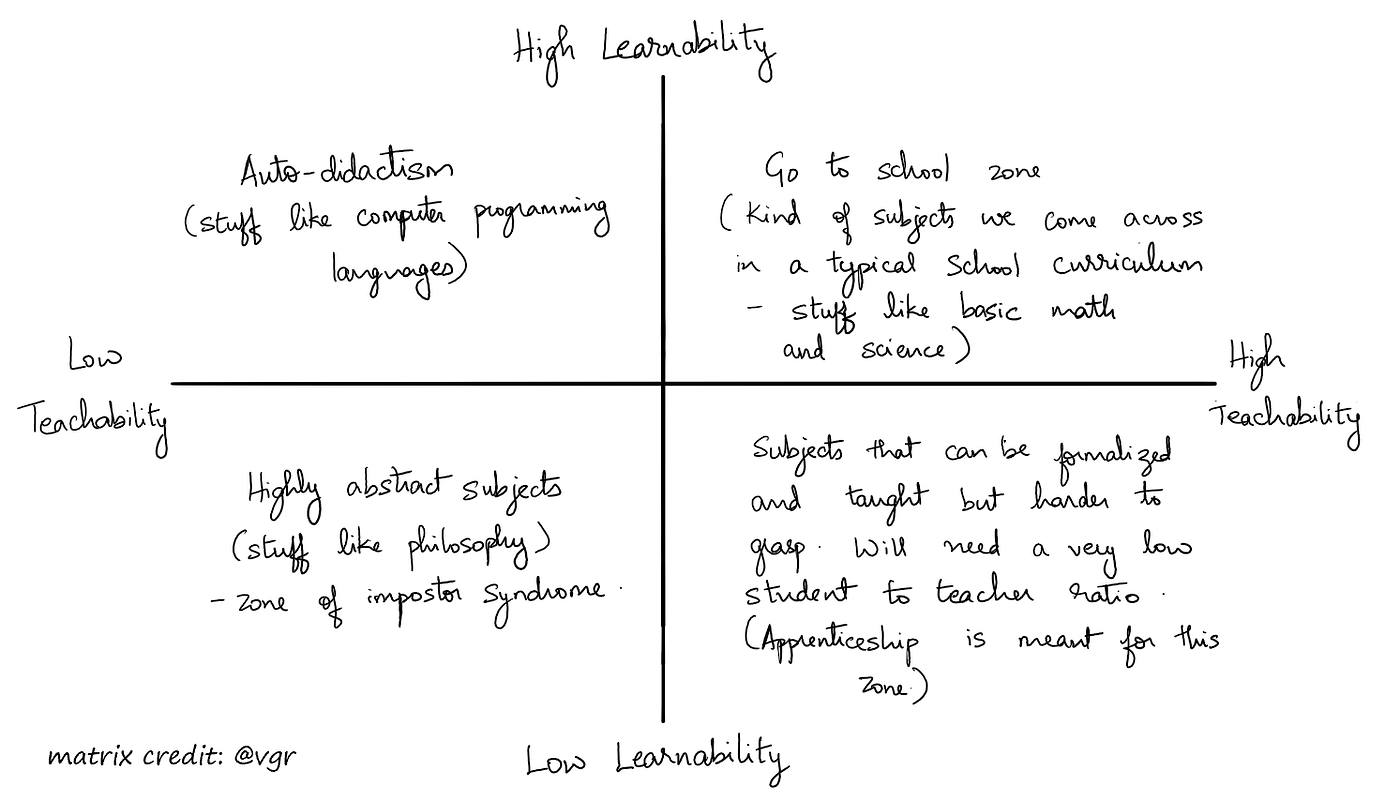 High Learnability
Auto-didactism
(stuff like computer programming
languages)
Go to school zone
(Kind of subjects we come across
in a typical School curriculum
- stuff like basic math
and science)
Low
Teachability
High
Teachability
Highly abstract subjects
(stuff like philosophy)
- zone of impostor syndrome.
Subjects that can be formalized
and taught but harder to
grasp. Will need a very low
student to teacher ratio.
(Apprenticeship is meant for this
zone.)
matrix credit: @vgr
Low Learnability